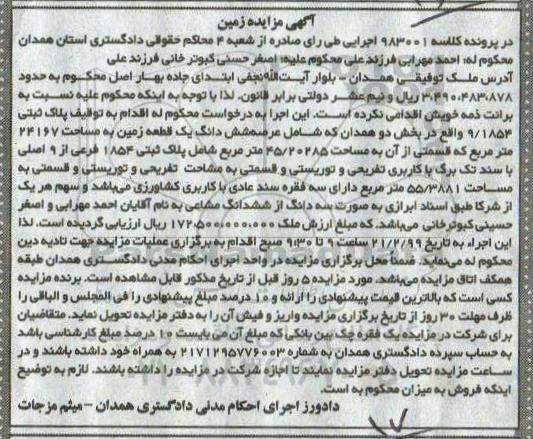 آگهی مزایده زمین
در پرونده کلاسه ۹۸۳۰۰۱ اجرایی طی رای صادره از شعبه ۴ محاکم حقوقی دادگستری استان همدان
محکوم له: احمد مهرابی فرزند علی محکوم علیه: اصغر حسنی کبوتر خانی فرزند علی
آدرس ملک توقیفی همدان - بلوار آیت‌الله نجفی ابتدای جاده بهار اصل محکوم به حدود
۳.۴۹۰.۴۸۳.۸۷۸ ریال و نیم عشر دولتی برابر قانون. لذا با توجه به اینکه محکوم علیه نسبت به
برائت ذمه خویش اقدامی نکرده است. این اجرا به درخواست محکوم له اقدام به توقیف پلاک ثبتی
۹/۱۸۵۴ واقع در بخش دو همدان که شامل عرصه‌شش دانگ یک قطعه زمین به مساحت ۲۲۱۶۷
متر مربع که قسمتی از آن به مساحت ۴۵/۲۰۲۸۵ متر مربع شامل پلاک ثبتی ۱۸۵۴ فرعی از ۹ اصلی
با سند تک برگ با کاربری تفریحی و توریستی و قسمتی به مشاحت تفریحی و توریستی و قسمتی به
مساحت ۵۵/۳۸۸۱ متر مربع دارای سه فقره سند عادی با کاربری کشاورزی می‌باشد و سهم هر یک
از شرکا طبق اسناد ابرازی به صورت سه دانگ از ششدانگ مشاعی به نام آقایان احمد مهرابی و اصغر
حسینی کبوترخانی می‌باشد. که مبلغ ارزش ملک ۱۷۲.۵۰۰.۰۰۰.۰۰۰ ریال ارزیابی گردیده است. لذا
این اجراء به تاریخ ۲۱/۲/۹۹ ساعت ۹ تا ۹:۳۰ صبح اقدام به برگزاری عملیات مزایده جهت تادیه دین
محکوم له می‌نماید. ضمنا محل برگزاری مزایده در واحد اجرای احکام مدنی دادگستری همدان طبقه
همکف اتاق مزایده می‌باشد. مورد مزایده ۵ روز قبل از تاریخ مذکور قابل مشاهده است. برنده مزایده
کسی است که بالاترین قیمت پیشنهادی را ارائه و ۱۰ درصد مبلغ پیشنهادی را فی المجلس و الباقی را
ظرف مهلت ۳۰ روز از تاریخ برگزاری مزایده واریز و فیش آن را به دفتر مزایده تحویل نماید. متقاضیان
برای شرکت در مزایده یک فقره چک بین بانکی که مبلغ آن می بایست ۱۰ درصد مبلغ کارشناسی باشد
به حساب سپرده دادگستری همدان به شماره ۲۱۷۱۲۹۵۷۷۶۰۰۳ به همراه خود داشته باشند و در
ساعت مزایده تحویل دفتر مزایده نمایند تا اجازه شرکت در مزایده را داشته باشند. لازم به توضیح
اینکه فروش به میزان محکوم به است.
دادورز اجرای احکام مدنی دادگستری همدان - میثم مزجات
۱۷